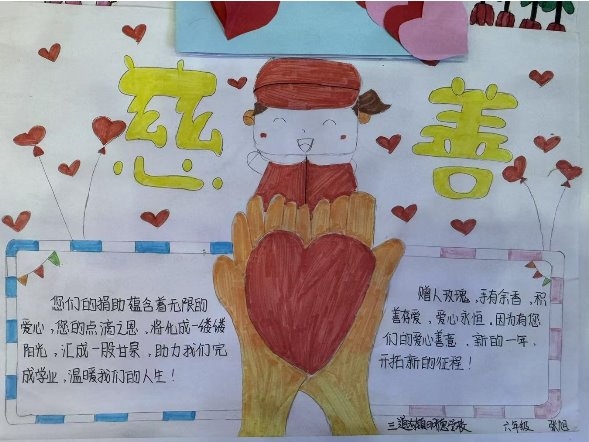 慈善
您们的捐助蕴含着无限的
爱心,您的点滴之恩,将化成一缕缕
阳光,汇成一股甘泉,助力我们完
成学业,温暖我们的人生!
赠人玫瑰,手有余香,积
善存爱,爱心永恒.因为有您
们的爱心善意,新的一年,
开拓新的征程!
六年级 张旭